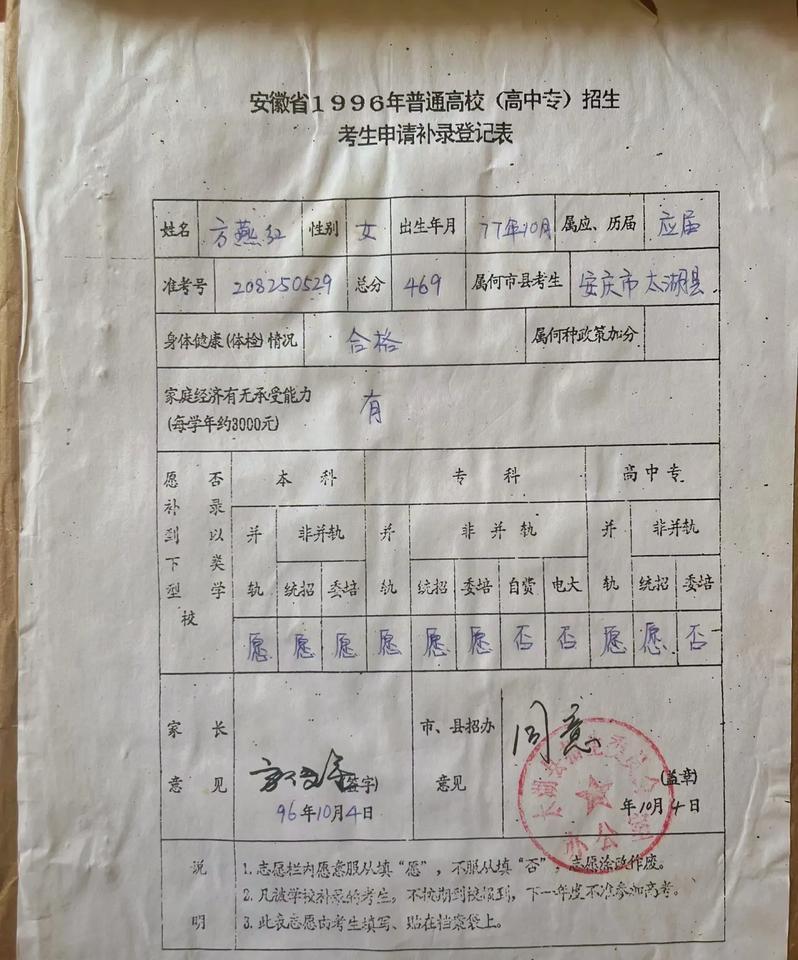 安徽省1996年普通高校（高中专）招生
考生申请补录登记表
姓名 方燕红 性别 女 出生年月 77年10月 属应、历届 应届
准考号 208250529 总分 469 属何市县考生 安庆市太湖县
身体健康(体检)情况 合格 属何种政策加分
家庭经济有无承受能力
(每学年约3000元) 有
愿否补录到以下类型学校
本科 专科 高中专
并轨 非并轨 并轨 非并轨 并轨 非并轨
统招 委培 统招 委培 自费 电大 统招 委培
愿 愿 愿 愿 愿 愿 否 否 愿 愿 否
家长意见
(签字)
96年10月4日
市、县招办意见
同意
(盖章)
年10月4日
太湖县招生委员会
办公室
说明
1.志愿栏内愿意服从填“愿”，不服从填“否”，志愿涂改作废。
2.凡被学校补录的考生，不按期到校报到，下一年度不准参加高考。
3.此表志愿由考生填写、贴在档案袋上。